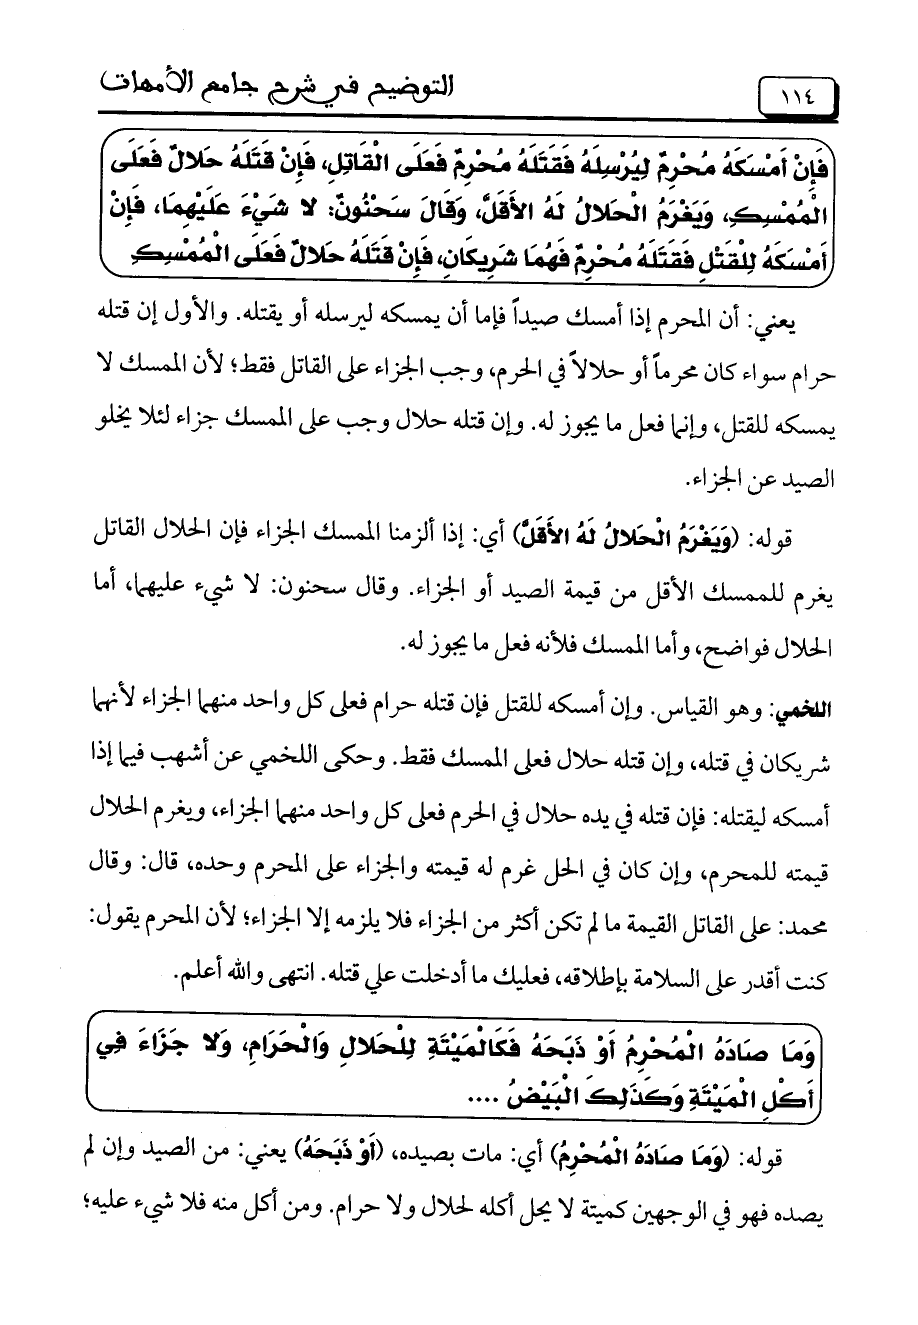 ١١٤
التوضيح في شرح جامع الأمهات
فَإِنْ أَمْسَكَهُ مُحْرِمٌ لِيُرْسِلَهُ فَقَتَلَهُ مُحْرِمٌ فَعَلَى الْقَاتِلِ، فَإِنْ قَتَلَهُ حَلالٌ فَعَلَى
الْمُمْسِكِ، وَيَغْرَمُ الْحَلالُ لَهُ الأَقَلَّ، وَقَالَ سَحْنُونٌ: لا شَيْءَ عَلَيْهِمَا، فَإِنْ
أَمْسَكَهُ لِلْقَتْلِ فَقَتَلَهُ مُحْرِمٌ فَهُمَا شَرِيكَانِ، فَإِنْ قَتَلَهُ حَلالٌ فَعَلَى الْمُمْسِكِ
يعني: أن المحرم إذا أمسك صيداً فإما أن يمسكه ليرسله أو يقتله. والأول إن قتله
حرام سواء كان محرماً أو حلالاً في الحرم، وجب الجزاء على القاتل فقط؛ لأن الممسك لا
يمسكه للقتل، وإنما فعل ما يجوز له. وإن قتله حلال وجب على الممسك جزاء لئلا يخلو
الصيد عن الجزاء.
قوله: (وَيَغْرَمُ الْحَلالُ لَهُ الأَقَلَّ) أي: إذا ألزمنا الممسك الجزاء فإن الحلال القاتل
يغرم للممسك الأقل من قيمة الصيد أو الجزاء. وقال سحنون: لا شيء عليهما، أما
الحلال فواضح، وأما الممسك فلأنه فعل ما يجوز له.
اللخمي: وهو القياس. وإن أمسكه للقتل فإن قتله حرام فعلى كل واحد منهما الجزاء لأنهما
شريكان في قتله، وإن قتله حلال فعلى الممسك فقط. وحكى اللخمي عن أشهب فيما إذا
أمسكه ليقتله: فإن قتله في يده حلال في الحرم فعلى كل واحد منهما الجزاء، ويغرم الحلال
قيمته للمحرم، وإن كان في الحل غرم له قيمته والجزاء على المحرم وحده، قال: وقال
محمد: على القاتل القيمة ما لم تكن أكثر من الجزاء فلا يلزمه إلا الجزاء؛ لأن المحرم يقول:
كنت أقدر على السلامة بإطلاقه، فعليك ما أدخلت علي قتله. انتهى والله أعلم.
وَمَا صَادَهُ الْمُحْرِمُ أَوْ ذَبَحَهُ فَكَالْمَيْتَةِ لِلْحَلالِ وَالْحَرَامِ، وَلا جَزَاءَ فِي
أَكْلِ الْمَيْتَةِ وَكَذَلِكَ الْبَيْضُ ....
قوله: (وَمَا صَادَهُ الْمُحْرِمُ) أي: مات بصيده، (أَوْ ذَبَحَهُ) يعني: من الصيد وإن لم
يصده فهو في الوجهين كميتة لا يحل أكله لحلال ولا حرام. ومن أكل منه فلا شيء عليه؛